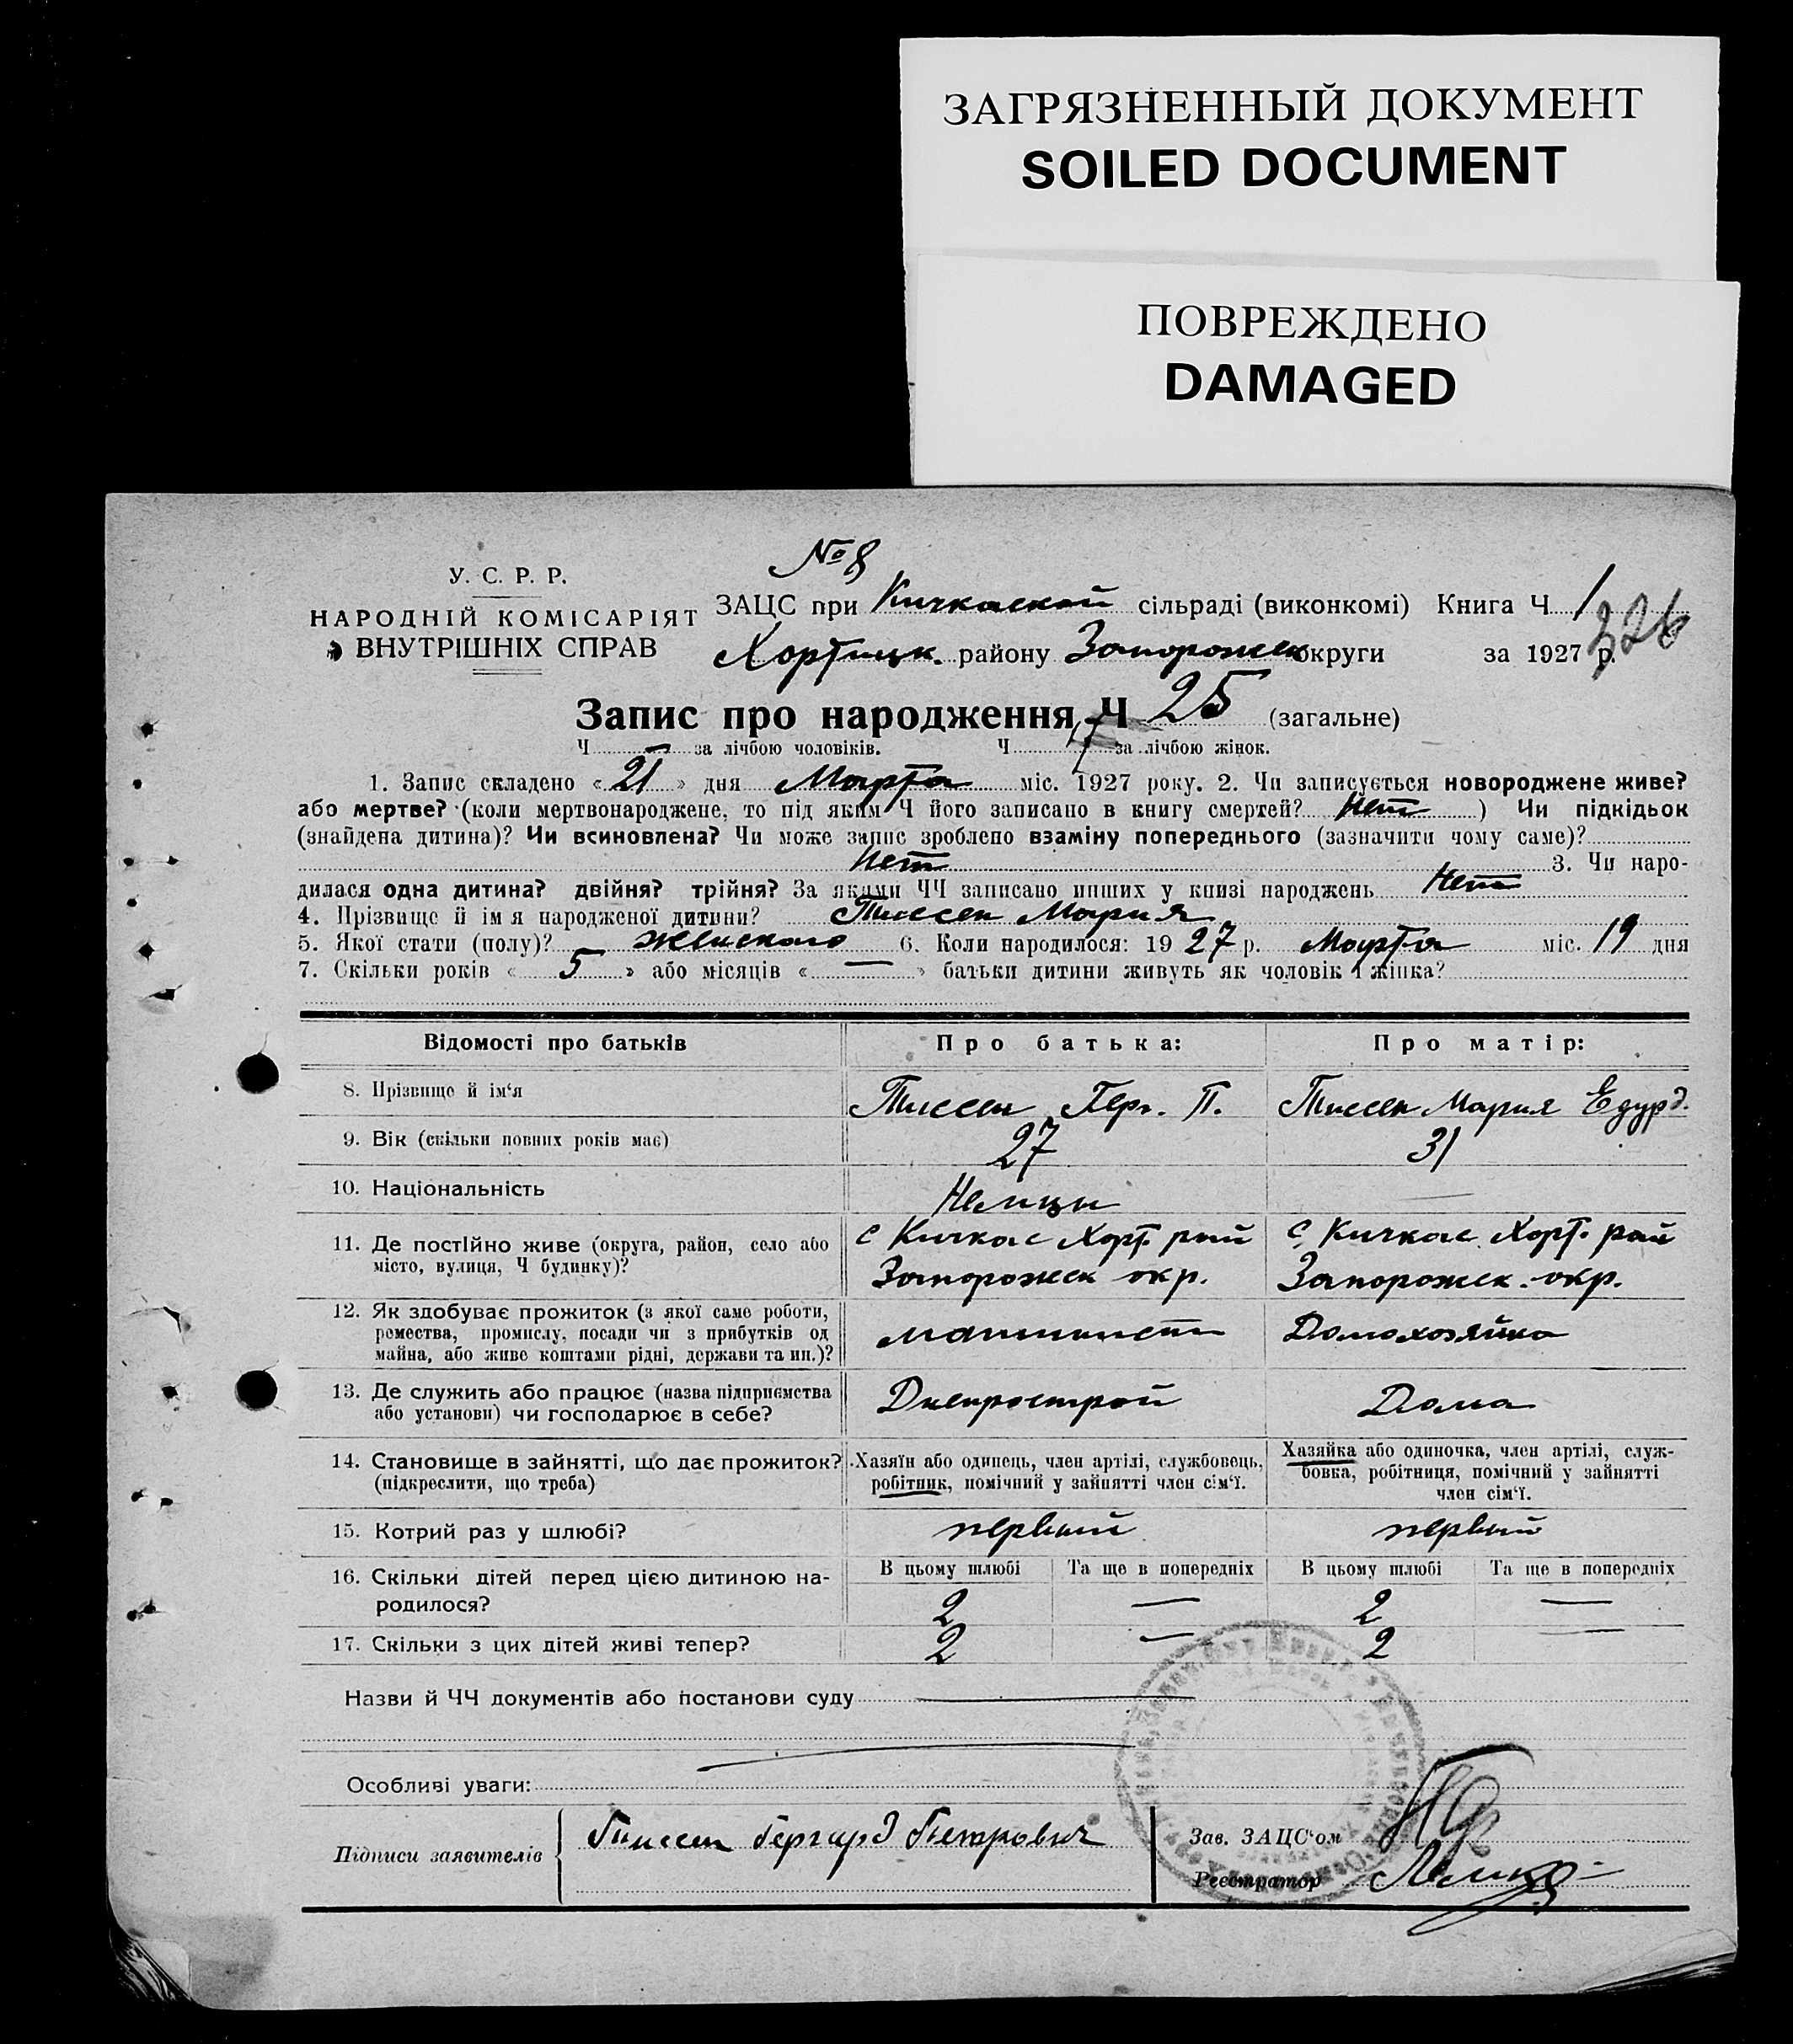 ЗАГРЯЗНЕННЫЙ ДОКУМЕНТ
SOILED DOCUMENT
ПОВРЕЖДЕНО
DAMAGED
№ 8
У. С. Р. Р.
НАРОДНІЙ КОМІСАРІЯТ
ВНУТРІШНІХ СПРАВ
ЗАЦС при Кичкаской сільраді (виконкомі) Книга Ч 1
326
Хортицк. району Запорожск округи за 1927 р.
Запис про народження Ч 25 (загальне)
Ч — за лічбою чоловіків. Ч 17 за лічбою жінок.
1. Запис складено « 21 » дня Марта міс. 1927 року. 2. Чи записується новороджене живе?
або мертве? (коли мертвонароджене, то під яким Ч його записано в книгу смертей? Нет ) Чи підкідьок
(знайдена дитина)? Чи всиновлена? Чи може запис зроблено взаміну попереднього (зазначити чому саме)?
Нет 3. Чи наро-
дилася одна дитина? двійня? трійня? За якими ЧЧ записано инших у книзі народжень Нет
4. Прізвище й ім я народженої дитини? Тиссен Мария
5. Якої стати (полу)? женского 6. Коли народилося: 19 27 р. Марта міс. 19 дня
7. Скільки років « 5 » або місяців « — » батьки дитини живуть як чоловік і жінка?
Відомості про батьків Про батька: Про матір:
8. Прізвище й ім‘я Тиссен Герг. П. Тиссен Мария Едурд.
9. Вік (скільки повних років має) 27 31
10. Національність Немцы
11. Де постійно живе (округа, район, село або
місто, вулиця, Ч будинку)?
с Кичкас Хорт. рай
Запорожск окр.
с. Кичкас Хорт. рай
Запорожск. окр.
12. Як здобуває прожиток (з якої саме роботи,
ремества, промислу, посади чи з прибутків од
майна, або живе коштами рідні, держави та ин.)?
машинист
Домохозяйка
13. Де служить або працює (назва підприємства
або установи) чи господарює в себе?
Днепрострой
Дома
14. Становище в зайнятті, що дає прожиток?
(підкреслити, що треба)
Хазяїн або одинець, член артілі, службовець,
робітник, помічний у зайнятті член сім‘ї.
Хазяйка або одиночка, член артілі, служ-
бовка, робітниця, помічний у зайнятті
член сім‘ї.
15. Котрий раз у шлюбі? первый первый
16. Скільки дітей перед цією дитиною на-
родилося?
В цьому шлюбі Та ще в попередніх В цьому шлюбі Та ще в попередніх
2 — 2 —
17. Скільки з цих дітей живі тепер? 2 — 2 —
Назви й ЧЧ документів або постанови суду
Особливі уваги:
Підписи заявителів Тиссен Гергард Петрович
Зав. ЗАЦС‘ом
Реєстратор